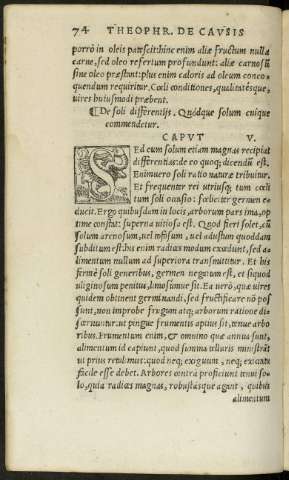 74 THEOPHR. DE CAVSIS
porrò in oleis patescit: hinc enim aliæ fructum nulla
carne, sed oleo refertum profundunt: aliæ carnosũ
sine oleo præstant: plus enim caloris ad oleum conco-
quendum requiritur. Cœli conditiones, qualitatésque,
uires huiusmodi præbent.
¶ De soli differentijs. Quódque solum cuique
commendetur.
CAPVT V.
SEd cum solum etiam magnas recipiat
differentias: de eo quoq; dicendũ est.
Enimuero soli ratio naturæ tribuitur.
Et frequenter rei utriusq; tum cœli
tum soli occasio: fœliciter germen e-
ducit. Ergo quibusdam in locis, arborum pars ima, op
time constat: superna uitiosa est. Quod fieri solet, cũ
solum arenosum, uel tofosum, uel adustum quoddam
subditum est: his enim radices modum exardunt, sed a-
limentum nullum ad superiora transmittitur. Et his
firmè soli generibus, germen negatum est, et siquod
uliginosum penitus, limosúmue sit. Ea uerò, quæ uires
quidem obtinent germinandi, sed fructificare nõ pos
sunt, non improbe frugum atq; arborum ratione di-
scernuntur. ut pingue frumentis aptius sit, tenue arbo
ribus. Frumentum enim, & omnino quæ annua sunt,
alimentum id capiunt, quod summa telluris ministrãt
ut prius retulimus. quod neq; exiguum, neq; exiccatu
facile esse debet. Arbores contra proficiunt tenui so-
lo, quia radices magnas, robustásque agunt, quibus
alimentum